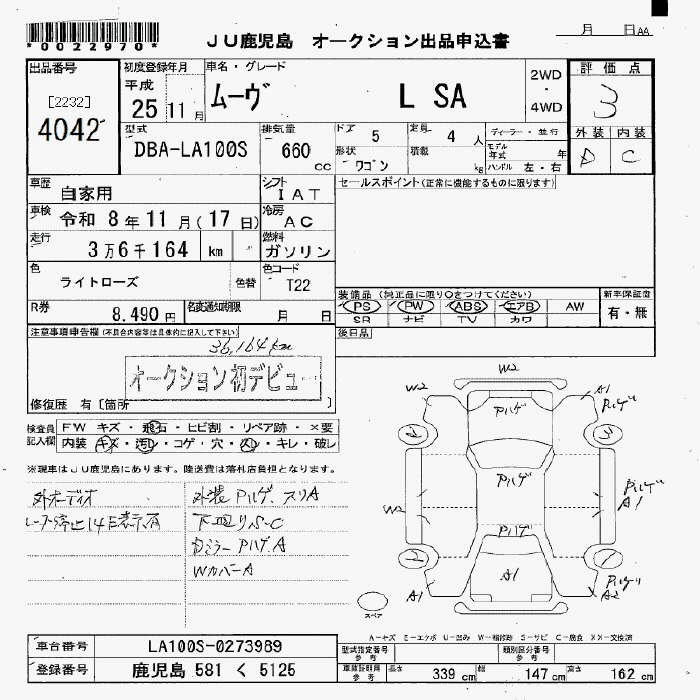 *0022970*
JU鹿児島 オークション出品申込書
月 日 AA
出品番号 初度登録年月 車名・グレード 2WD ・ 4WD 評価点
[2232]
4042
平成
25 11月 ムーヴ L SA 3
型式 排気量 ドア 5 定員 4 人 ディーラー・並行 外装 内装
DBA-LA100S 660 cc 形状 ワゴン 積載 kg モデル年式 年 C
ハンドル 左・右
車歴 自家用 シフト IAT セールスポイント(正常に機能するものに限ります)
車検 令和 8年11月(17日) 冷房 AC
走行 3万6千164 km 燃料 ガソリン
色 ライトローズ 色替 色コード T22
装備品(純正品に限り○をつけてください) 新車保証書
R券 8,490円 名変通知期限 月 日
PS PW ABS エアB AW 有・無
SR ナビ TV カワ
注意事項申告欄(不具合内容等は具体的に記入して下さい) 後日品
36,164km
オークション初デビュー
修復歴 有[箇所 ]
検査員記入欄 FW キズ・飛石・ヒビ割・リペア跡・×要
内装 キズ・汚レ・コゲ・穴・スレ・キレ・破レ
※現車はJU鹿児島にあります。陸送費は落札店負担となります。
外オーディオ
外装 Pハゲ、スリA
下回りS-C
ドミラーPハゲA
WカバーA
W2
W2 Pハゲ A1 Pハゲ
W2 Pハゲ A1
Pハゲ
A1 A1 Pハゲ A2
スペア
A-キズ E-エクボ U-凹み W-補修跡 S-サビ C-腐食 XX-交換済
車台番号 LA100S-0273989 型式指定番号 参考 類別区分番号 参考
登録番号 鹿児島 581 く 5125 車検証明用 参考 長さ 339 cm 幅 147 cm 高さ 162 cm